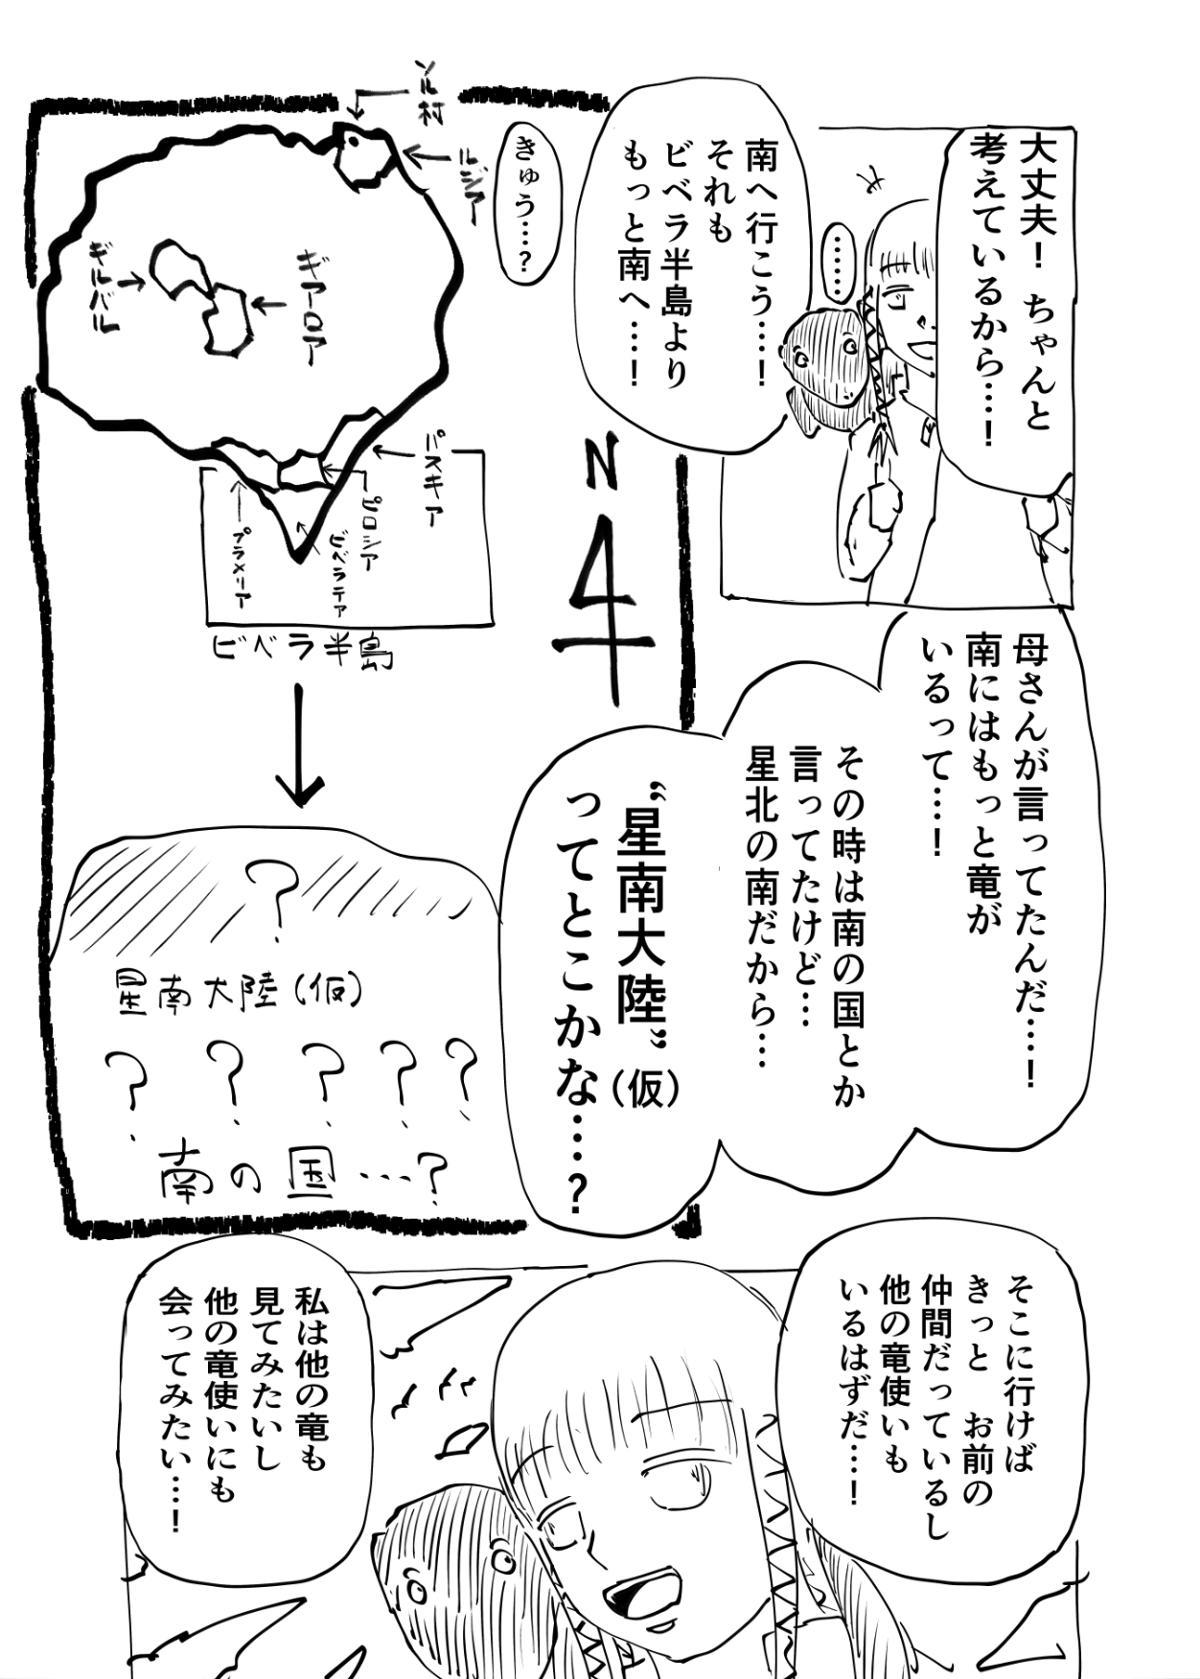 大丈夫！ちゃんと
考えているから…！
……
南へ行こう…！
それも
ビベラ半島より
もっと南へ…！
きゅう…？
ソル村
ルジア
ギアロア
ギルバル
パスキア
ピロシア
ビベラテア
プラメリア
ビベラ半島
N
母さんが言ってたんだ…！
南にはもっと竜が
いるって…！
その時は南の国とか
言ってたけど…
星北の南だから…
“星南大陸”（仮）
ってとこかな…？
？
星南大陸（仮）
？ ？ ？ ？ ？
南の国…？
そこに行けば
きっと お前の
仲間だっているし
他の竜使いも
いるはずだ…！
私は他の竜も
見てみたいし
他の竜使いにも
会ってみたい…！